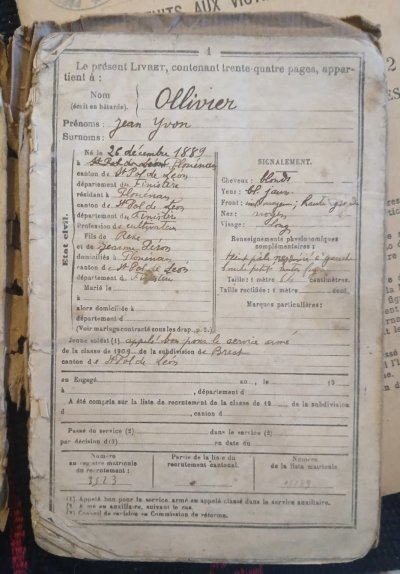 ITS AUX VICT
1
Le présent LIVRET, contenant trente-quatre pages, appar-
tient à :
Nom
(écrit en bâtarde). Ollivier
Prénoms : Jean Yvon
Surnoms :
Etat civil.
Né le 26 décembre 1889
à St Pol de Léon Plouénan
canton de St Pol de Léon
département du Finistère
résidant à Plouénan
canton de St Pol de Léon
département du Finistère
Profession de cultivateur
Fils de René
et de Jeanne
domiciliés à Plouénan
canton de St Pol de Léon
département du Finistère
Marié le
à
alors domiciliée à
département d
(Voir mariage contracté sous les drap., p. 2.)
SIGNALEMENT.
Cheveux : blonds
Yeux : bl. jaun.
Front : Haut
Nez : moyen
Visage : long
Renseignements physionomiques
complémentaires :
Taille : 1 mètre centimètres.
Taille rectifiée : 1 mètre cent.
Marques particulières :
Jeune soldat (1) appelé bon pour le service armé
de la classe de 1909 de la subdivision de Brest
canton de St Pol de Léon
ou Engagé le 19
à , département d
A été compris sur la liste de recrutement de la classe de 19 de la subdivision
d , canton d
Passé du service (2) dans le service (2)
par décision d(3) en date du
Numéro
au registre matricule
du recrutement :
3523
Partie de la liste du
recrutement cantonal.
Numéro
de la liste matricule
(1) Appelé bon pour le service armé ou appelé classé dans le service auxiliaire.
(2) Armé ou auxiliaire, suivant le cas.
(3) Conseil de revision ou Commission de réforme.